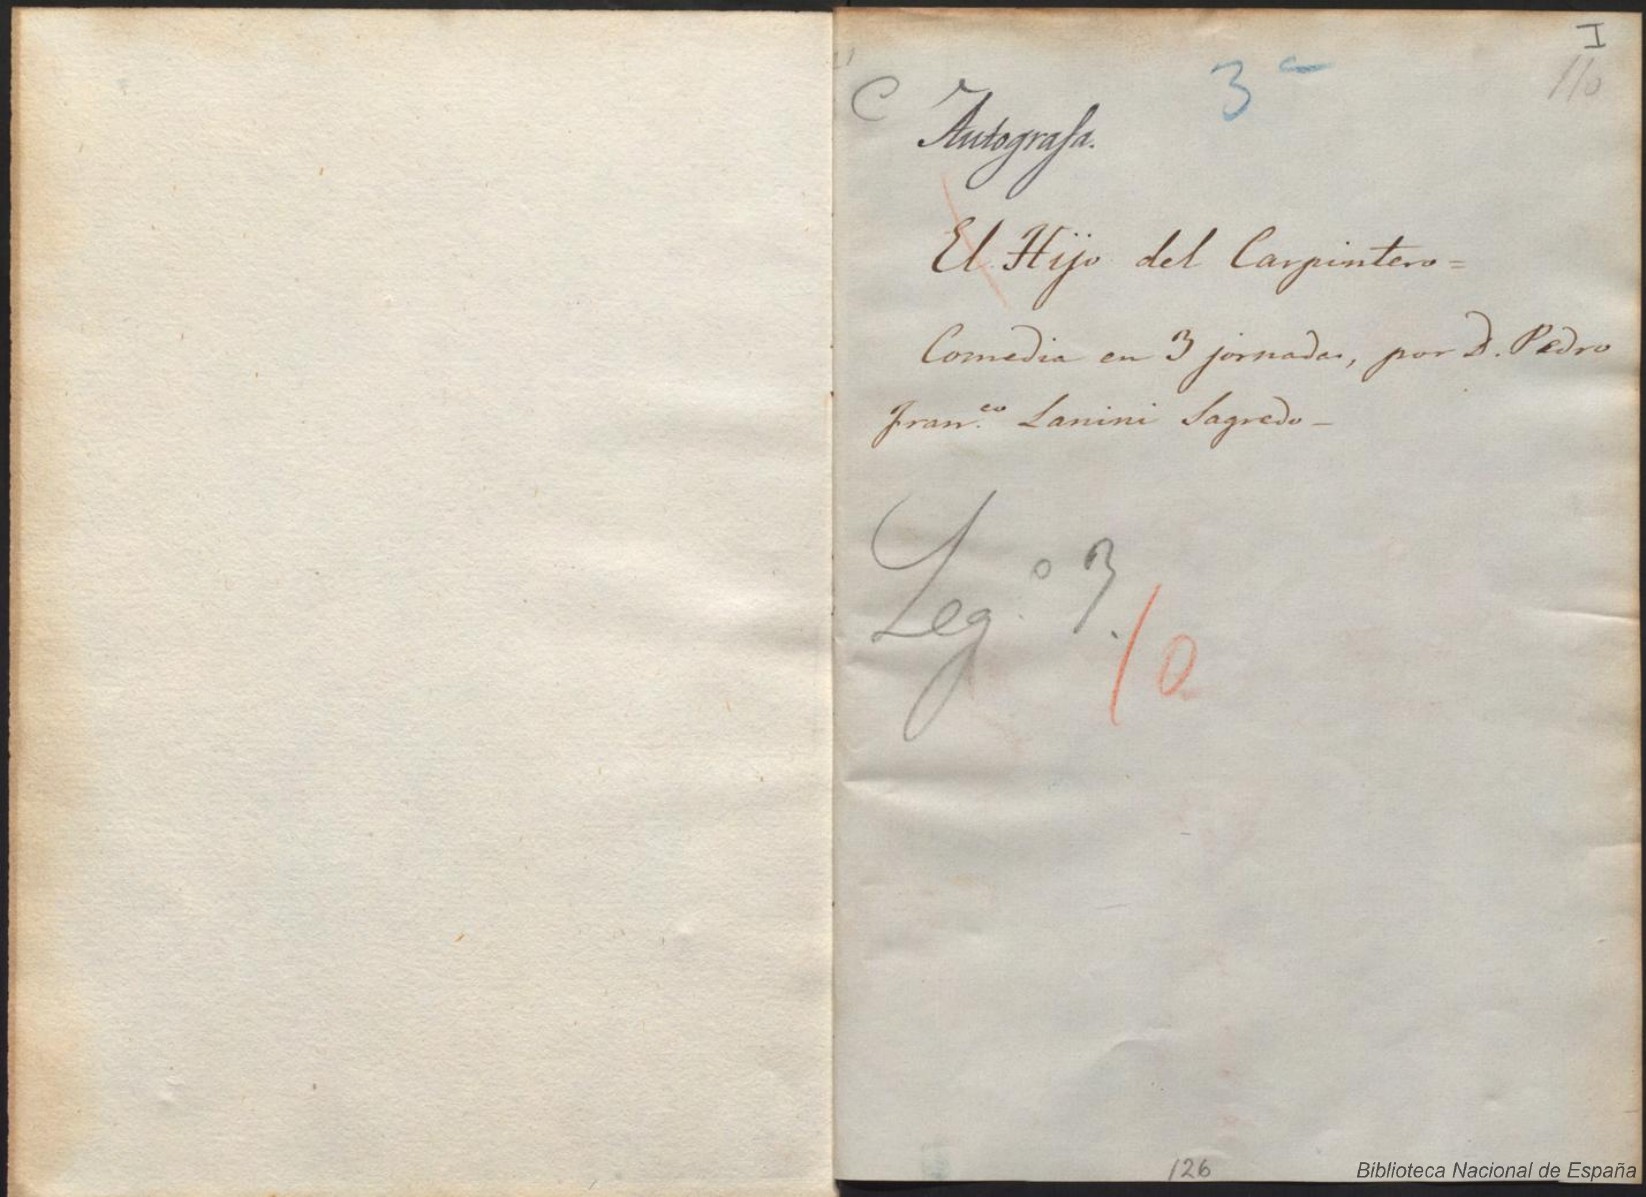 I
110
C 3ª
Autografa.
El Hijo del Carpintero=
Comedia en 3 jornadas, por D. Pedro
Fran.co Lanini Sagredo-
Leg.º 3.
10
126
Biblioteca Nacional de España